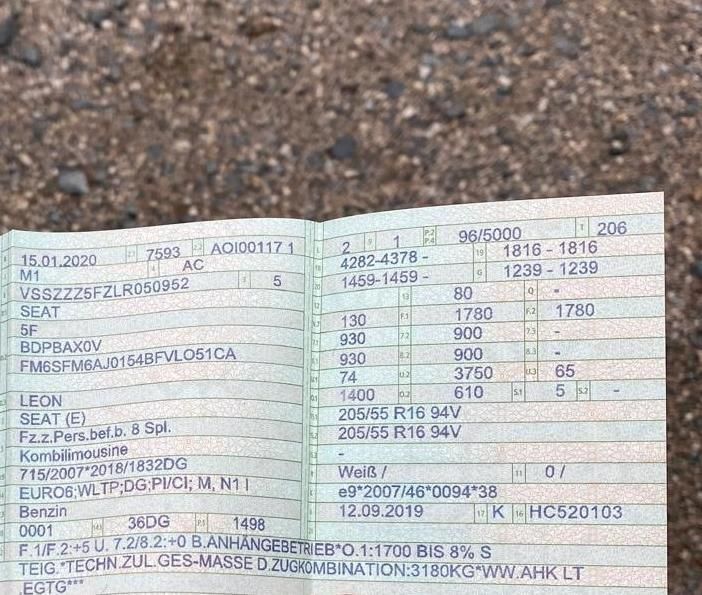 15.01.2020 2.1 7593 2.2 AOI00117 1
M1 4 AC
VSSZZZ5FZLR050952 3 5
SEAT
5F
BDPBAX0V
FM6SFM6AJ0154BFVLO51CA
LEON
SEAT (E)
Fz.z.Pers.bef.b. 8 Spl.
Kombilimousine
715/2007*2018/1832DG
EURO6;WLTP;DG;PI/CI; M, N1 I
Benzin
0001 36DG P.1 1498
2 9 1 P.2 P.4 96/5000 T 206
4282-4378 - 19 1816 - 1816
1459-1459 - G 1239 - 1239
13 80 Q -
130 F.1 1780 F.2 1780
930 7.2 900 7.3 -
930 8.2 900 8.3 -
74 U.2 3750 U.3 65
1400 O.2 610 S.1 5 S.2 -
205/55 R16 94V
205/55 R16 94V
-
Weiß / 11 0 /
e9*2007/46*0094*38
12.09.2019 17 K 16 HC520103
F.1/F.2:+5 U. 7.2/8.2:+0 B.ANHÄNGEBETRIEB*O.1:1700 BIS 8% S
TEIG.*TECHN.ZUL.GES-MASSE D.ZUGKOMBINATION:3180KG*WW.AHK LT
.EGTG***